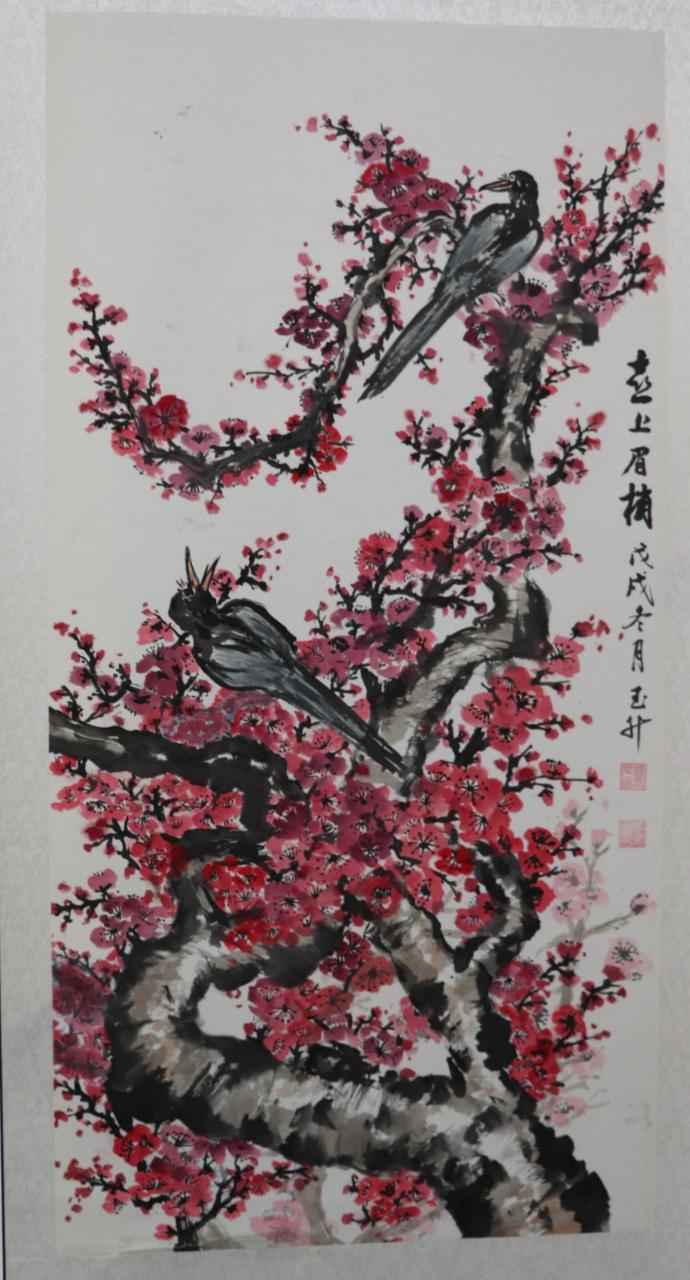 喜上眉梢 戊戌冬月 玉升